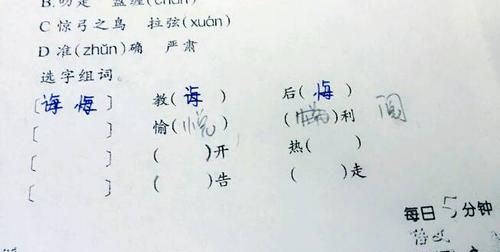 C 惊弓之鸟 拉弦(xuán)
D 准(zhǔn)确 严肃
选字组词。
[诲 悔] 教(诲) 后(悔)
[ ] 愉(悦) ( )利 阅
[ ] ( )开 热( )
[ ] ( )告 ( )走
每日5分钟